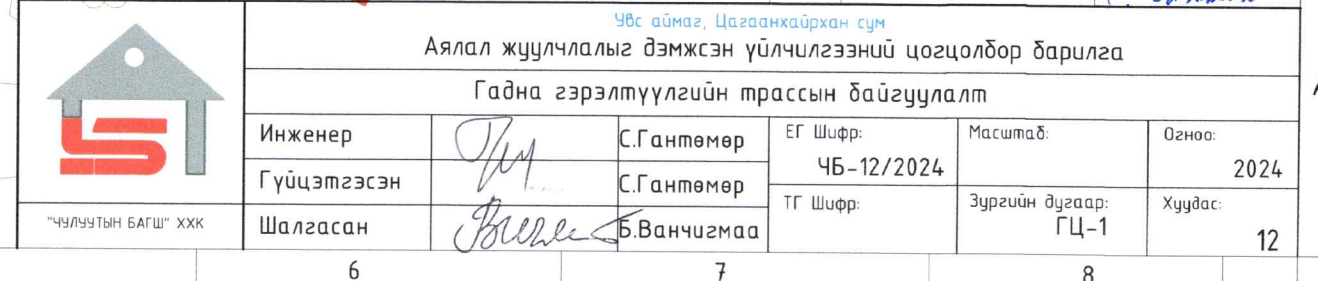 Увс аймаг, Цагаанхайрхан сум
Аялал жуулчлалыг дэмжсэн үйлчилгээний цогцолбор барилга
Гадна гэрэлтүүлгийн трассын байгуулалт
Инженер
С.Гантөмөр
Гүйцэтгэсэн
С.Гантөмөр
Шалгасан
Б.Ванчигмаа
ЕГ Шифр:
ЧБ-12/2024
Масштаб:
Огноо:
2024
ТГ Шифр:
Зургийн дугаар:
ГЦ-1
Хуудас:
12
"ЧУЛУУТЫН БАГШ" ХХК
6
7
8